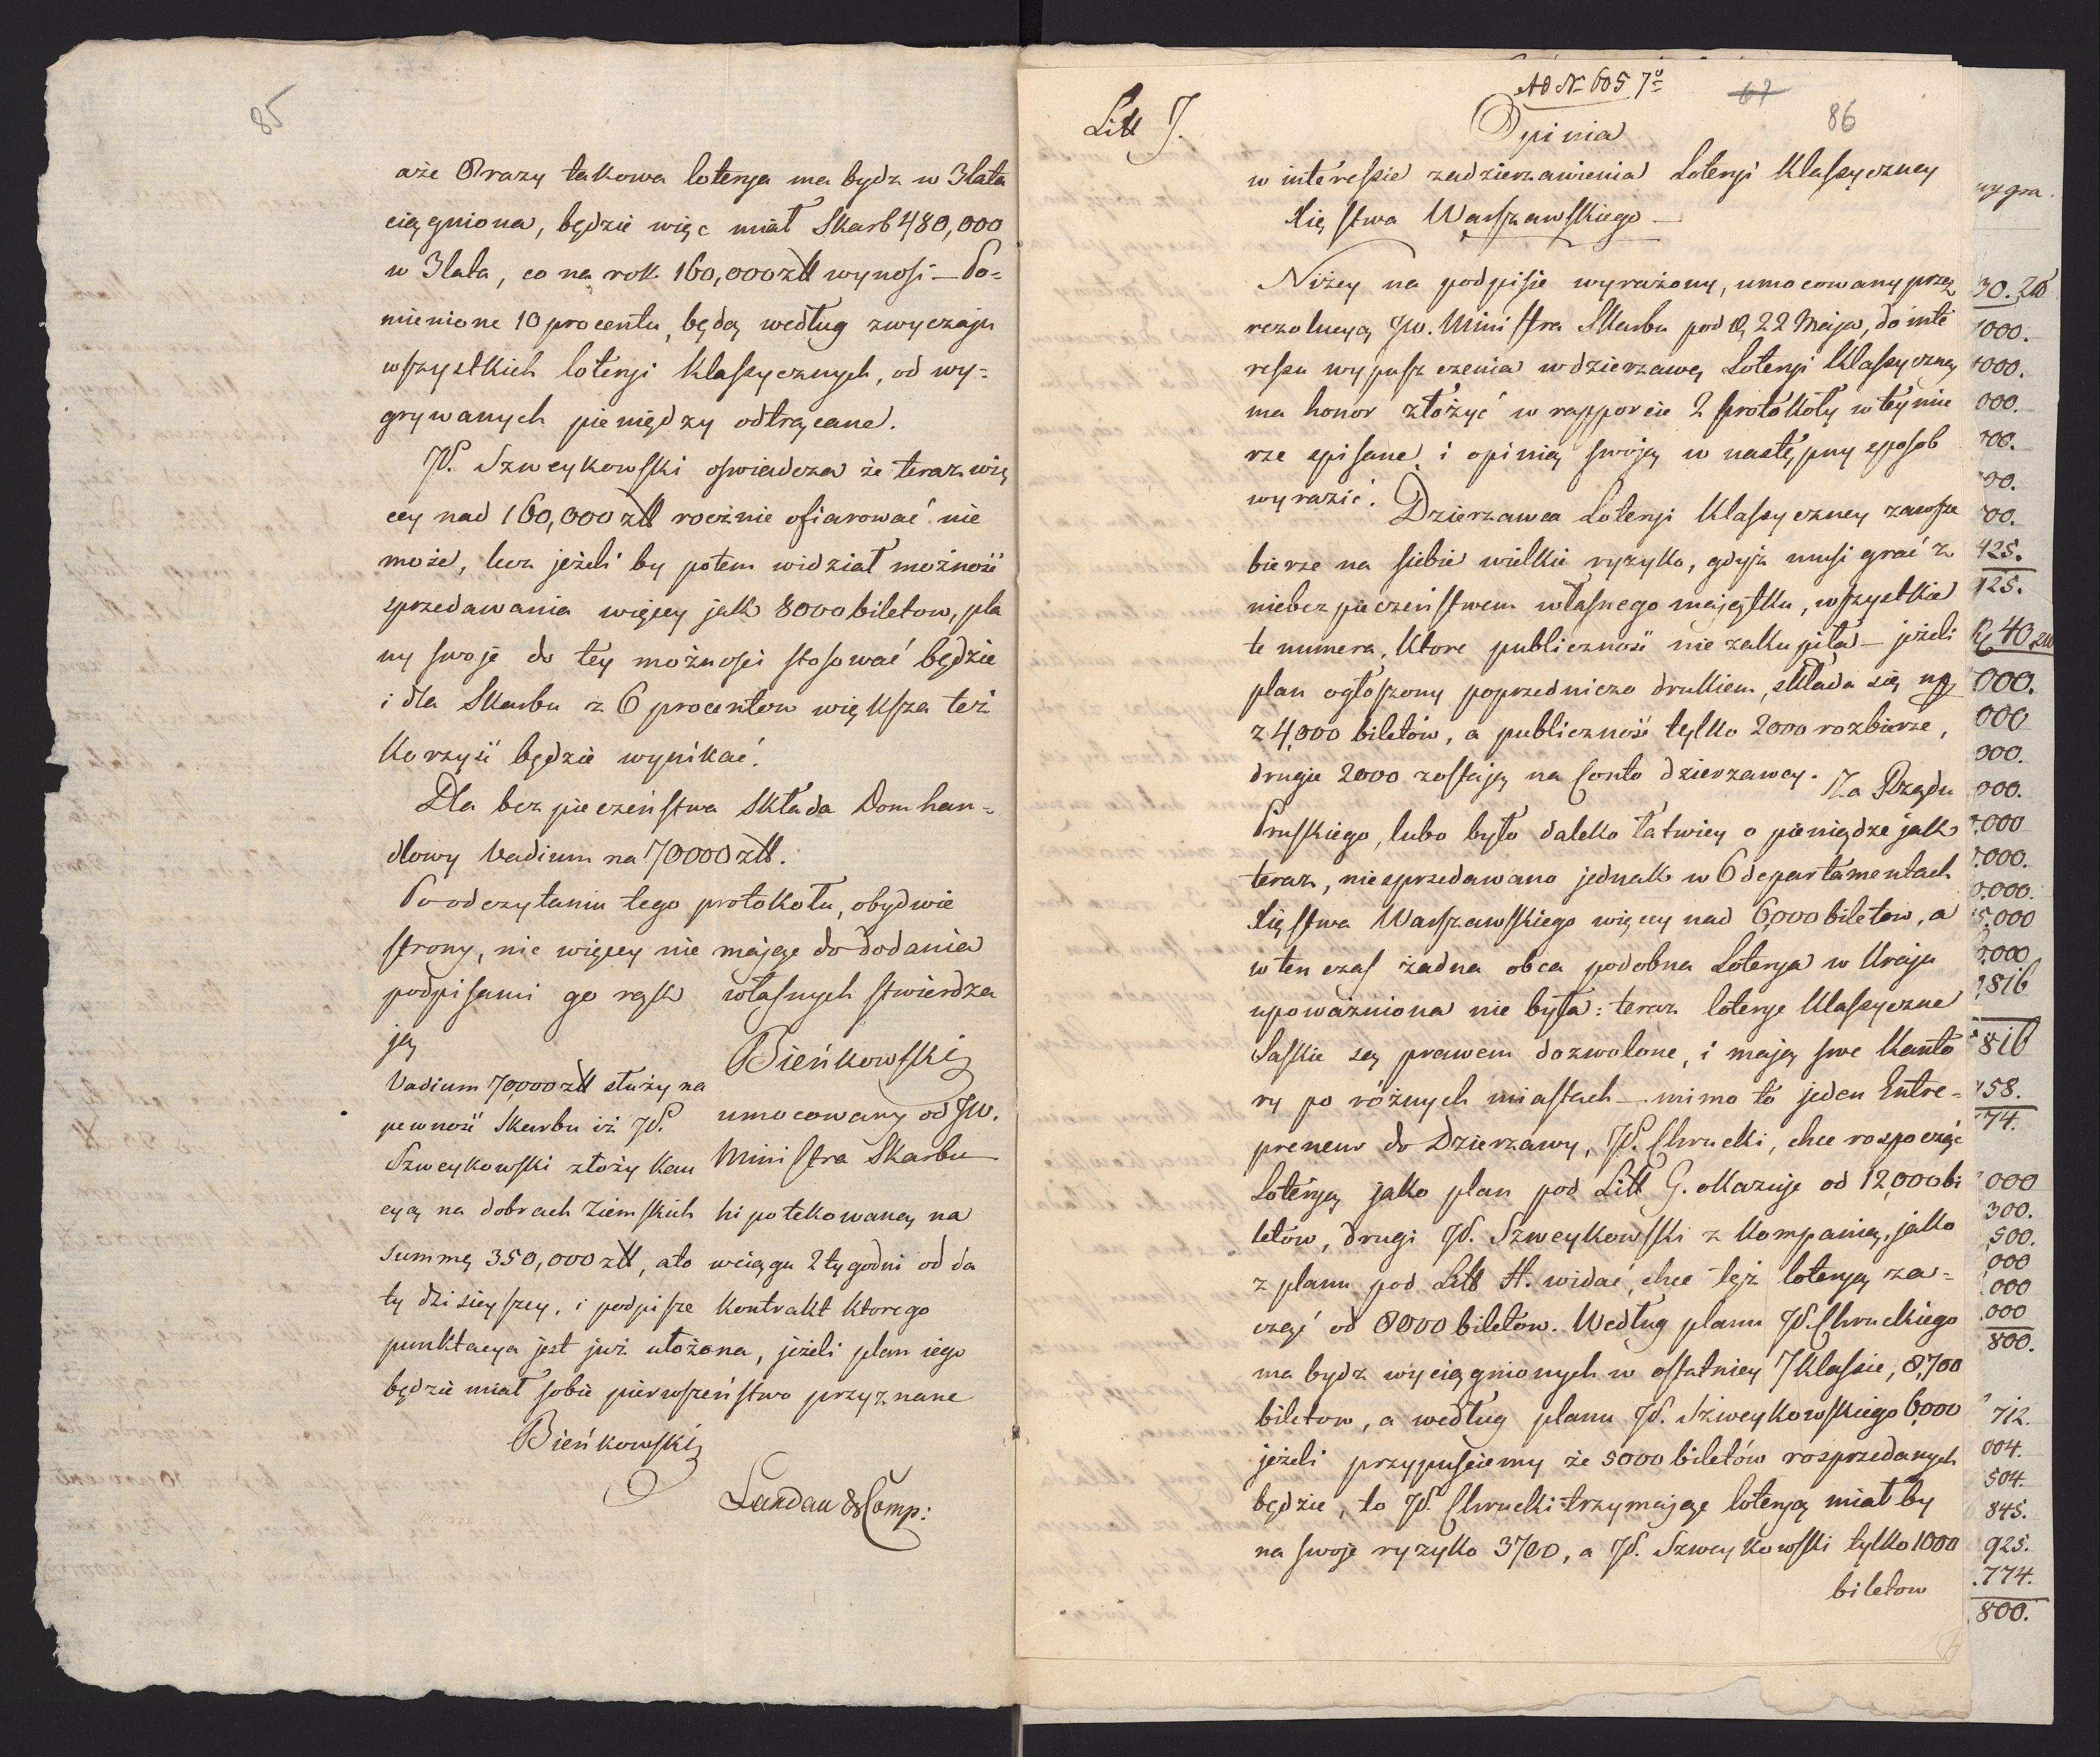 85
aże 8 razy takowa loterya ma bydz w 3 lata
ciągniona, będzie więc miał Skarb 480,000
w 3 lata, co na rok 160,000 złł wynosi — Po=
mienione 10 procentu, będą według zwyczaju
wszystkich loteryi klassycznych, od wy=
grywanych pieniędzy odtrącane.
JP. Szweykowski oswiadcza że teraz wię
cey nad 160,000 złł rocznie ofiarować nie
może, lecz jeżeli by potem widział możność
sprzedawania więcey jak 8000 biletow, pla
ny swoje do tey możności stosować będzie
i dla Skarbu z 6 procentow większa też
korzyść będzie wynikać.
Dla bezpieczeństwa składa Dom han=
dlowy Vadium na 70000 złł.
Po odczytaniu tego protokołu, obydwie
strony, nic więcey nie mające do dodania
podpisami go rąk własnych stwierdza
ją
Bieńkowski
umocowany od JW.
Ministra Skarbu
Vadium 70,000 złł służy na
pewność Skarbu iż JP.
Szweykowski złoży kau
cyą na dobrach Ziemskich hipotekowaną na
summę 350,000 złł, a to wciągu 2 tygodni od da
ty dzisieyszey, i podpisze kontrakt ktorego
punktacya jest już ułożona, jeżeli plan iego
będzie miał sobie pierwszeństwo przyznane
Bieńkowski
Landau & Comp:
Ad N 605 7º
67
86
Litt J.
Opinia
w interessie zadzierzawienia Loteryi Klassyczney
Xięstwa Warszawskiego —
Niżey na podpisie wyrażony, umocowany przez
rezolucyą JW. Ministra Skarbu pod d, 22 Maja, do inte
ressu wypuszczenia w dzierzawę Loteryi Klassyczney
ma honor złożyć w rapporcie 2 protokoły w tey mie
rze spisane, i opinią swoją w następny sposob
wyrazić. Dzierzawca Loteryi Klassyczney zawsze
bierze na siebie wielkie ryzyko, gdyż musi grać z
niebezpieczeństwem własnego majątku, wszystkie
te numera, ktore publiczność nie zakupiła — jeżeli
plan ogłoszony poprzedniczo drukiem, składa się np
z 4,000 biletów, a publiczność tylko 2000 rozbierze,
drugie 2000 zostają na Conto dzierzawcy. Za Rządu
Pruskiego, lubo było daleko łatwiey o pieniądze jak
teraz, niesprzedawano jednak w 6 departamentach
Xięstwa Warszawskiego więcey nad 6,000 biletow, a
w ten czas żadna obca podobna Loterya w Kraju
upoważniona nie była: teraz loterye klassyczne
Saskie są prawem dozwolone, i mają swe Kanto
ry po różnych miastach — mimo to jeden Entre=
preneur do Dzierzawy, JP. Chrucki, chce rozpocząć
Loteryą jako plan pod Litt G. okazuje od 12,000 bi
letów, drugi JP. Szweykowski z Kompanią, jako
z planu pod Litt H. widać, chce też loteryą za=
cząć od 8000 biletow. Według planu JP. Chruckiego
ma bydz wyciągnionych w ostatniey 7 klassie, 8,700
biletow, a według planu JP. Szweykowskiego 6,000
jeżeli przypuściemy że 5000 biletów rozprzedanych
będzie, to JP. Chrucki trzymające loteryą miałby
na swoje ryzyko 3700, a JP. Szweykowski tylko 1000
biletow
wygra.
30. złł
000.
000.
000.
00.
00.
00.
425.
125.
40
000.
000
000.
000.
000
000.
0.000.
5.000
000
816
816
58.
74.
000
300.
500.
000
000
000
800.
712.
004.
504.
845.
925.
774.
800.